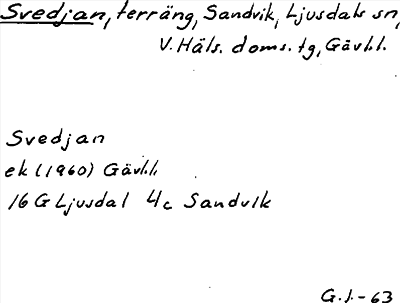 Svedjan, terräng, Sandvik, Ljusdals sn,
V. Häls. doms. tg, Gävl.l.
Svedjan
ek (1960) Gävl.l.
16 G Ljusdal 4c Sandvik
G.J.-63